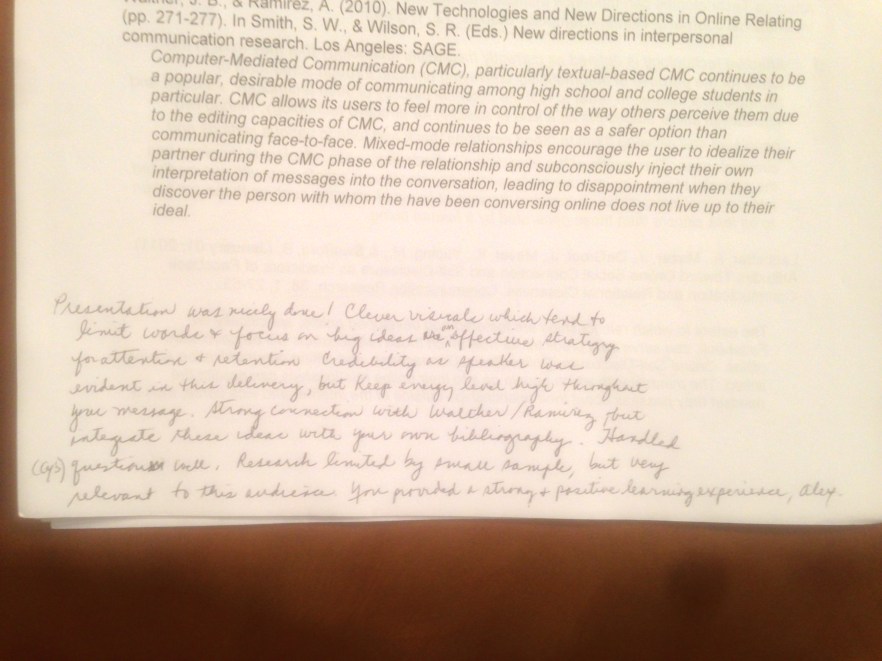 Walther, J. B., & Ramirez, A. (2010). New Technologies and New Directions in Online Relating
(pp. 271-277). In Smith, S. W., & Wilson, S. R. (Eds.) New directions in interpersonal
communication research. Los Angeles: SAGE.
Computer-Mediated Communication (CMC), particularly textual-based CMC continues to be
a popular, desirable mode of communicating among high school and college students in
particular. CMC allows its users to feel more in control of the way others perceive them due
to the editing capacities of CMC, and continues to be seen as a safer option than
communicating face-to-face. Mixed-mode relationships encourage the user to idealize their
partner during the CMC phase of the relationship and subconsciously inject their own
interpretation of messages into the conversation, leading to disappointment when they
discover the person with whom the have been conversing online does not live up to their
ideal.
Presentation was nicely done! Clever visuals which tend to
limit words & focus on big ideas an effective strategy
for attention & retention. Credibility as speaker was
evident in this delivery, but keep energy level high throughout
your message. Strong connection with Walther/Ramirez, but
integrate these ideas with your own bibliography. Handled
questions well. Research limited by small sample, but very
relevant to this audience. You provided a strong & positive learning experience, Alex.